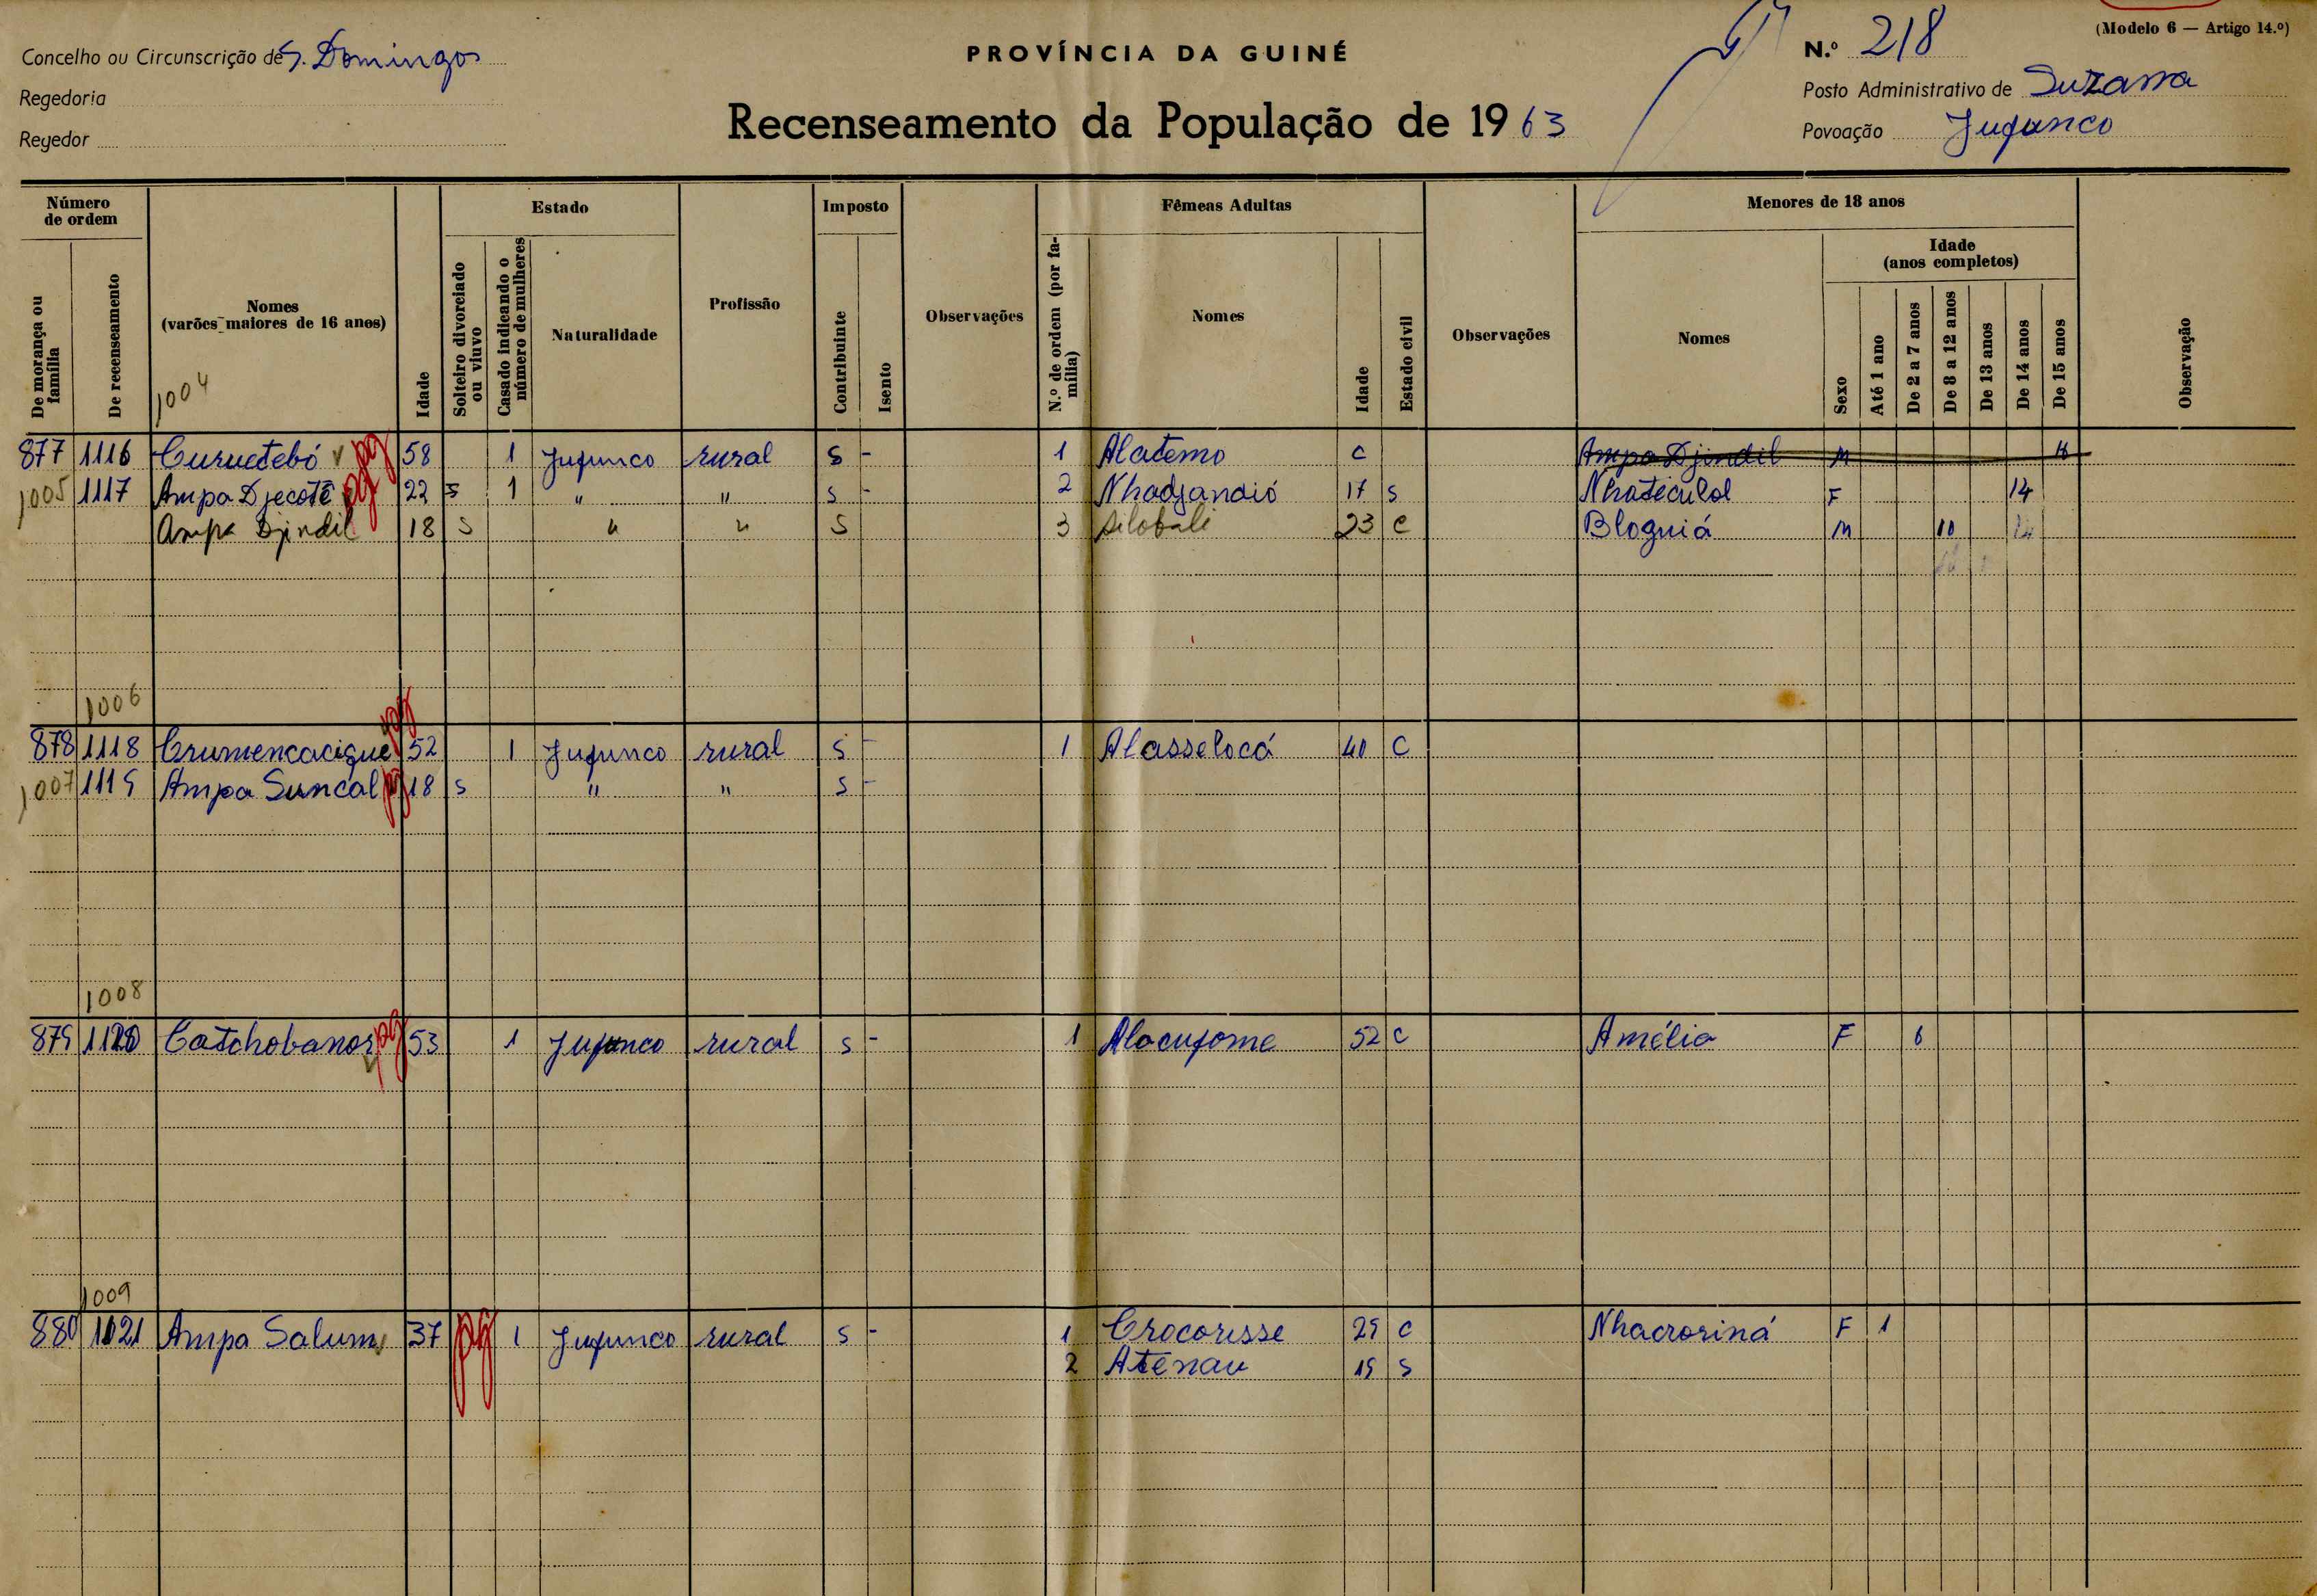 (Modelo 6 — Artigo 14.º)
Concelho ou Circunscrição de S. Domingos
PROVÍNCIA DA GUINÉ
N.º 218
Regedoria
Posto Administrativo de Suzana
Regedor
Recenseamento da População de 1963
Povoação Jufunco
Número de ordem
De morança ou família
De recenseamento
Nomes
(varões maiores de 16 anos)
1004
Idade
Estado
Solteiro divorciado ou viuvo
Casado indicando o número de mulheres
Naturalidade
Profissão
Imposto
Contribuinte
Isento
Observações
Fêmeas Adultas
N.º de ordem (por família)
Nomes
Idade
Estado civil
Observações
Menores de 18 anos
Nomes
Sexo
Idade
(anos completos)
Até 1 ano
De 2 a 7 anos
De 8 a 12 anos
De 13 anos
De 14 anos
De 15 anos
Observação
877 1116 Curuetebó pg 58 1 Jufunco rural S - 1 Alatemo C Ampa Djindil M
1005 1117 Ampa Djecoté pg 22 S 1 " " S - 2 Nhadjandió 17 S Nhateculol F 14
Ampa Djindil 18 S " " S 3 Silobali 23 C Bloguiá M 10 14
1006
878 1118 Crumencacique pg 52 1 Jufunco rural S - 1 Alasselocá 40 C
1007 1119 Ampa Suncal pg 18 S " " S -
1008
879 1120 Catchobanor pg 53 1 Jufunco rural S - 1 Alocufome 52 C Amélia F 6
1009
880 1021 Ampa Salum 37 pg 1 Jufunco rural S - 1 Crocorisse 29 C Nhacroriná F 1
2 Atenau 19 S